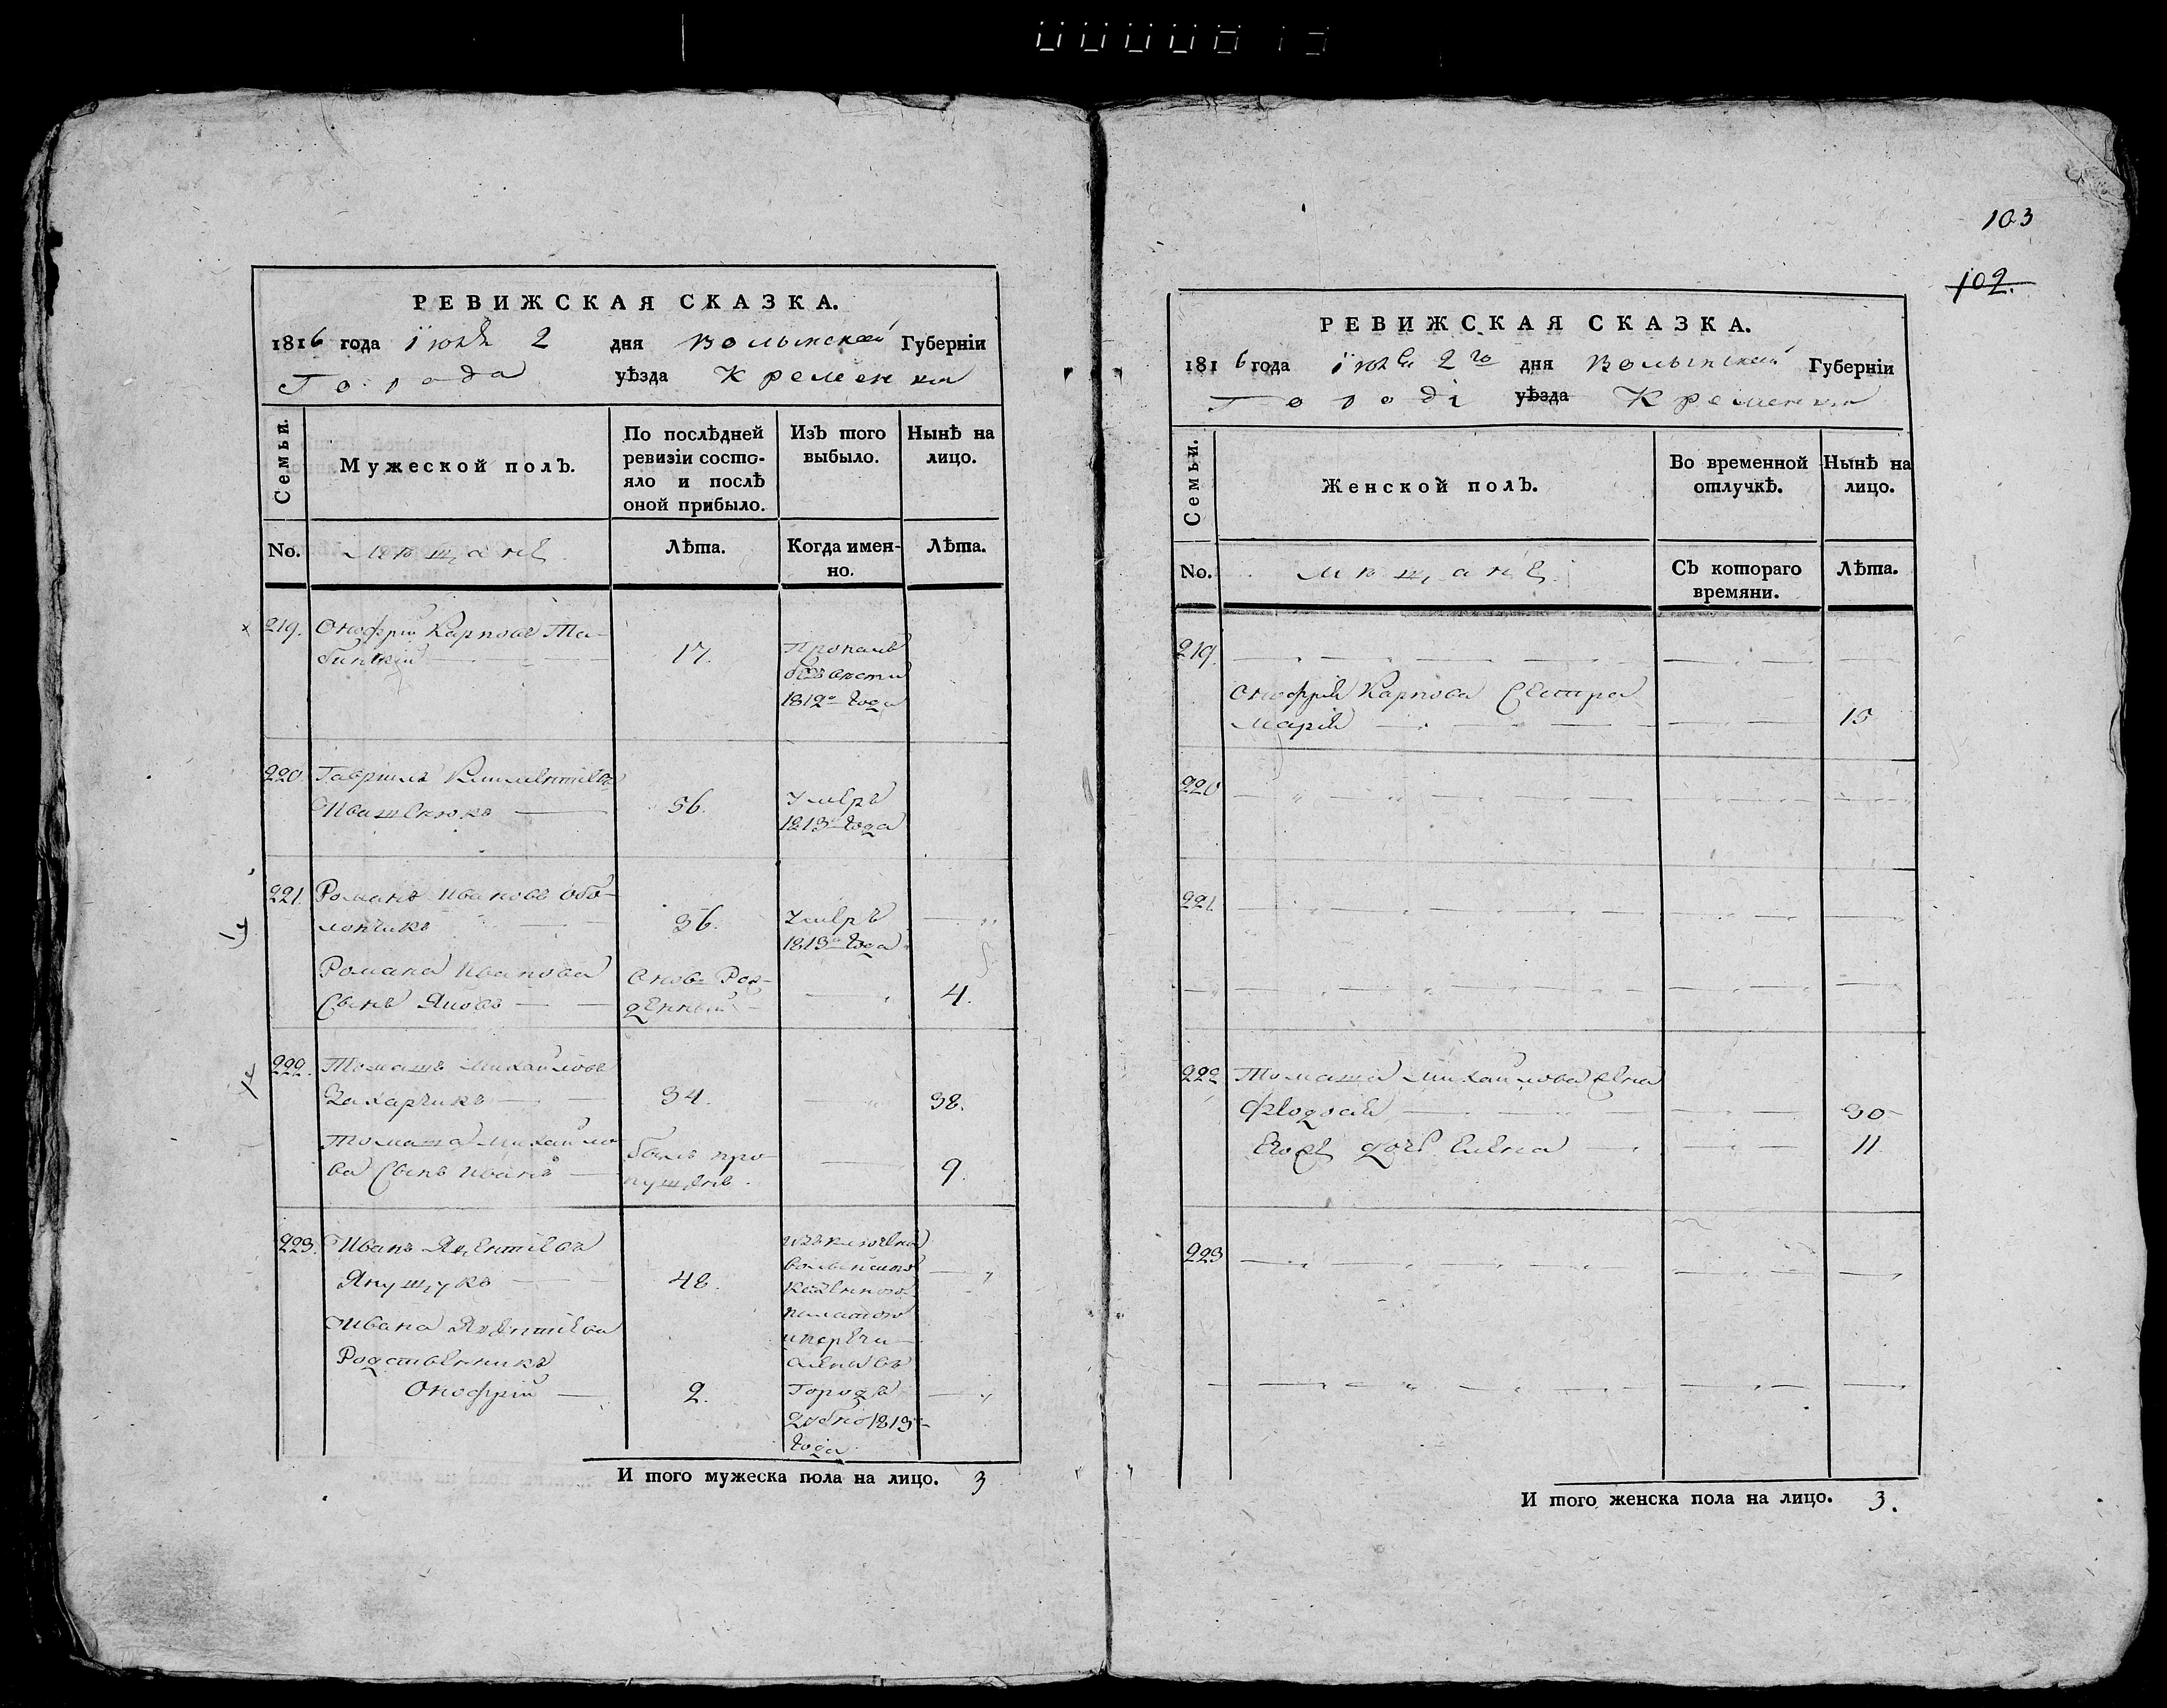 103
102.
РЕВИЖСКАЯ СКАЗКА.
1816 года Іюля 2 дня Волынской Губерніи
Города уѣзда Кременца
Семьи.
Мужеской полъ.
По послѣдней ревизіи состо-
яло и послѣ оной прибыло.
Изъ того выбыло.
Нынѣ на лицо.
No. Мѣщане Лѣта. Когда имен-
но. Лѣта.
219. Онофрій Карповъ
17. Пропалъ
безвѣсти
1812го Года
220 Гавріилъ
Ивашенюкъ 56. Умеръ
1813 Года
221. Романъ Ивановъ Обо-
лончикъ 36. Умеръ
1813 Года
Романа Иванова
Сынъ Яковъ Новорож-
денный 4.
222. Томашъ Михайловъ
Захарчикъ 34. 38.
Томаша Михайло-
ва Сынъ Иванъ былъ про-
пущенъ. 9.
223. Иванъ
Янущукъ 48.
Волынской
Казенной
Ивана
Родственникъ
Онофрій 2. Городъ
Дубно 1813
Года
И того мужеска пола на лицо. 3
РЕВИЖСКАЯ СКАЗКА.
1816 года Іюля 2го дня Волынской Губерніи
Города уѣзда Кременца
Семьи.
Женской полъ.
Во временной отлучкѣ.
Нынѣ на лицо.
No. Мѣщане Съ котораго
времяни. Лѣта.
219.
Онофрія Карпова Сестра
Марія 15
220
221.
222 Томаша Михайлова жена
Феодосія 30
Егожъ дочь Елена 11
223
И того женска пола на лицо. 3.